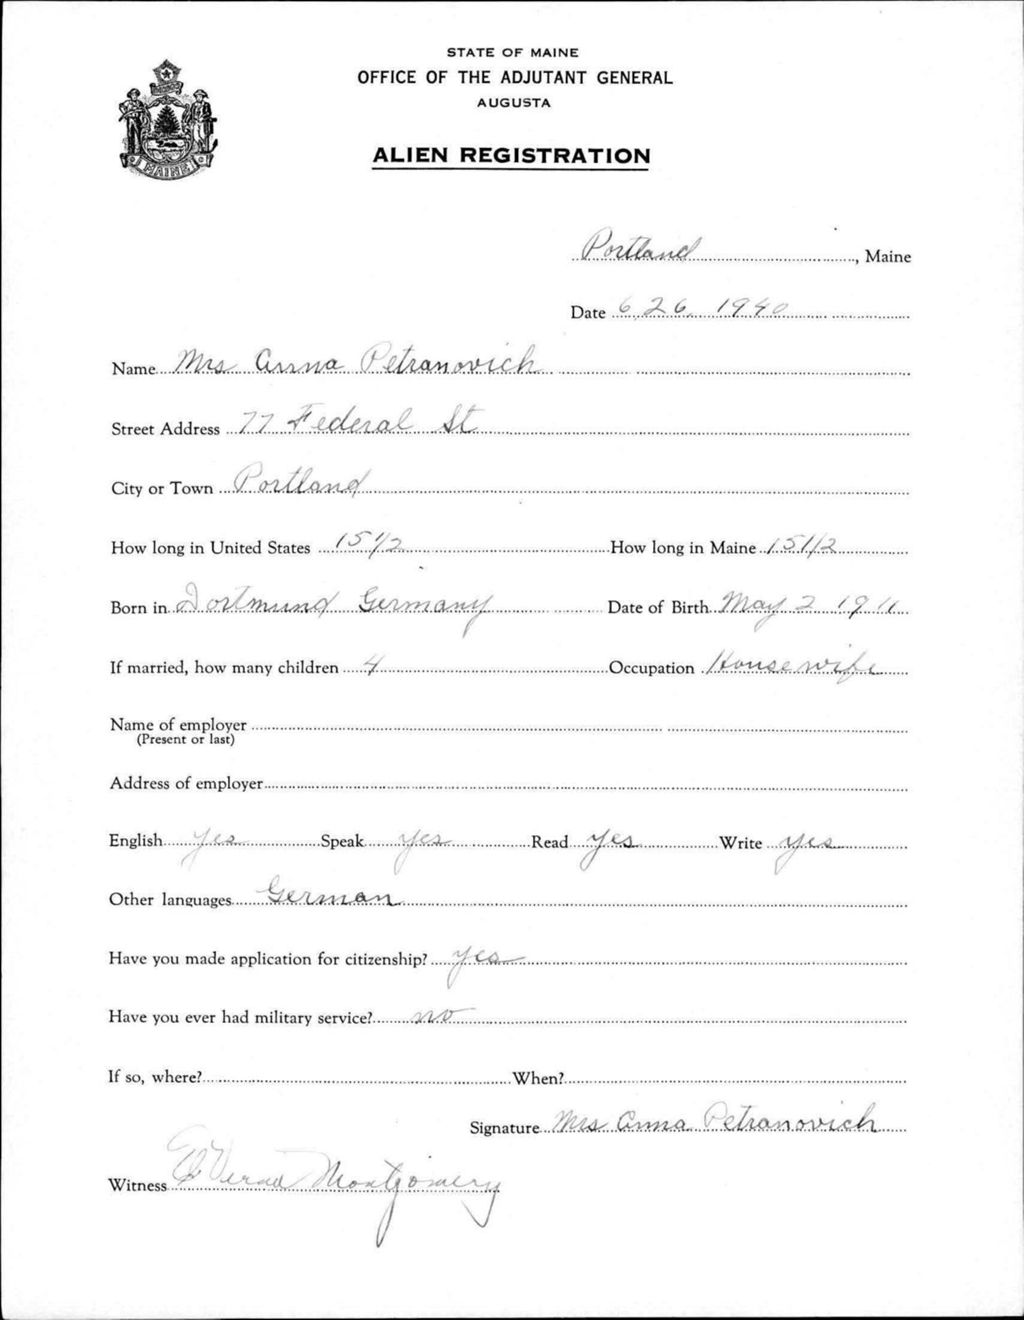 STATE OF MAINE
OFFICE OF THE ADJUTANT GENERAL
AUGUSTA
MAINE
ALIEN REGISTRATION
Portland, Maine
Date 6 26, 1940
Name Mrs Anna Petranovich
Street Address 77 Federal St
City or Town Portland
How long in United States 15 1/2 How long in Maine 15 1/2
Born in Dortmund Germany Date of Birth May 2 1911
If married, how many children 4 Occupation Housewife
Name of employer
(Present or last)
Address of employer
English yes Speak yes Read yes Write yes
Other languages German
Have you made application for citizenship? yes
Have you ever had military service? no
If so, where? When?
Signature Mrs Anna Petranovich
Witness Verna Montgomery